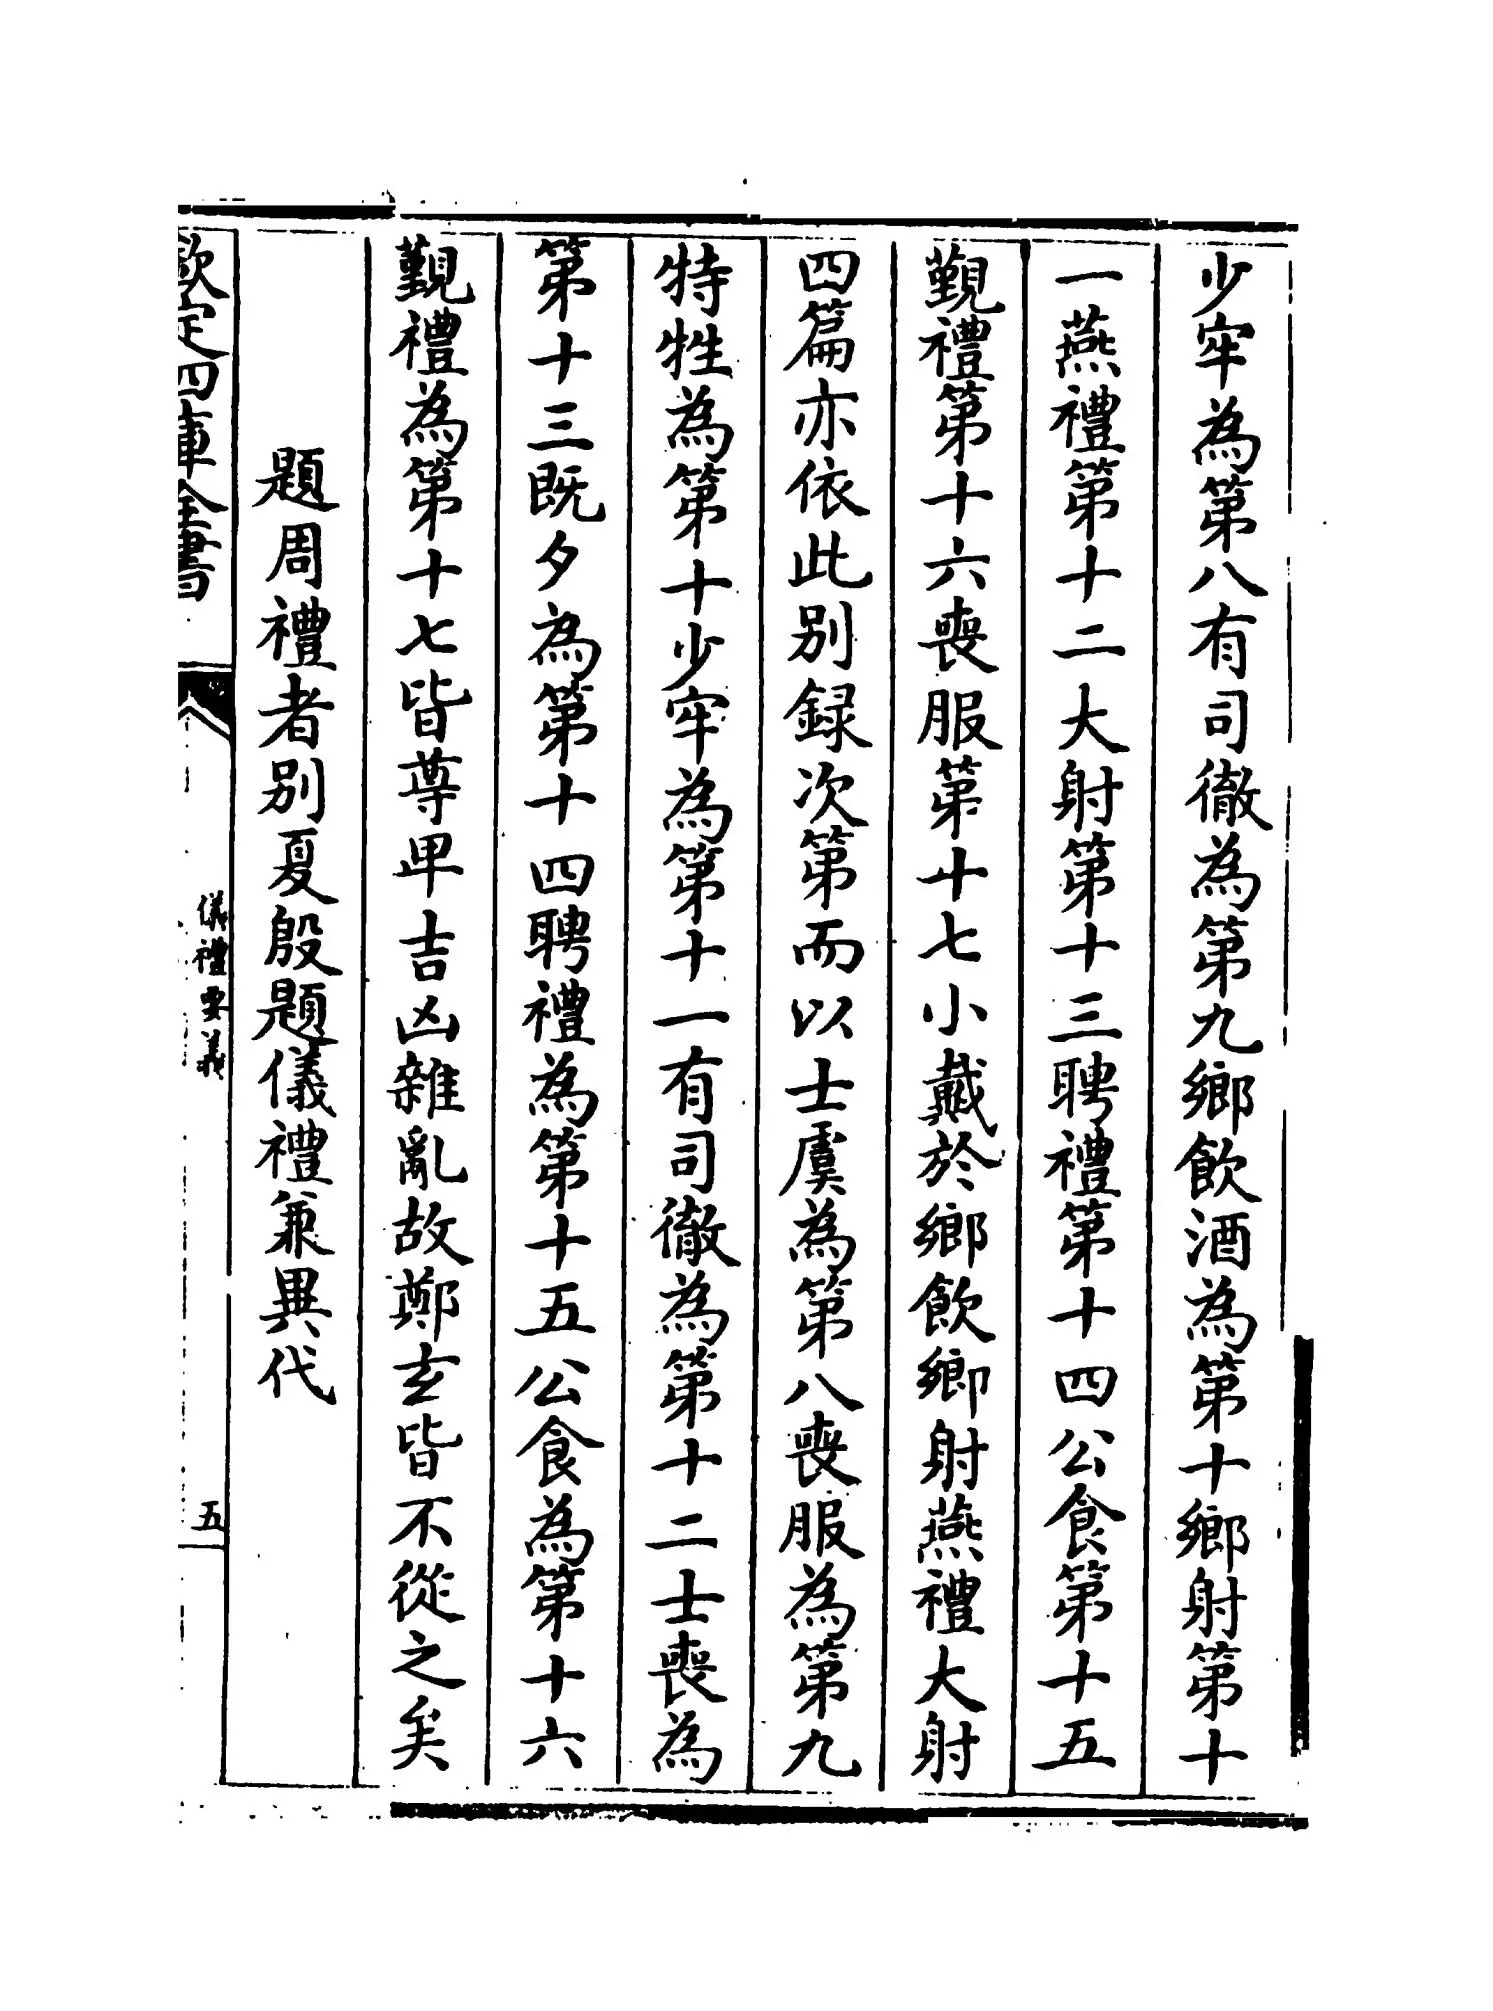 少牢為第八有司徹為第九鄉飲酒為第十鄉射第十
一燕禮第十二大射第十三聘禮第十四公食第十五
覲禮第十六喪服第十七小戴於鄉飲鄉射燕禮大射
四篇亦依此别録次第而以士虞為第八喪服為第九
特牲為第十少牢為第十一有司徹為第十二士喪為
第十三既夕為第十四聘禮為第十五公食為第十六
覲禮為第十七皆尊卑吉凶雜亂故鄭玄皆不從之矣
題周禮者别夏殷題儀禮兼異代
欽定四庫全書
儀禮要義
五